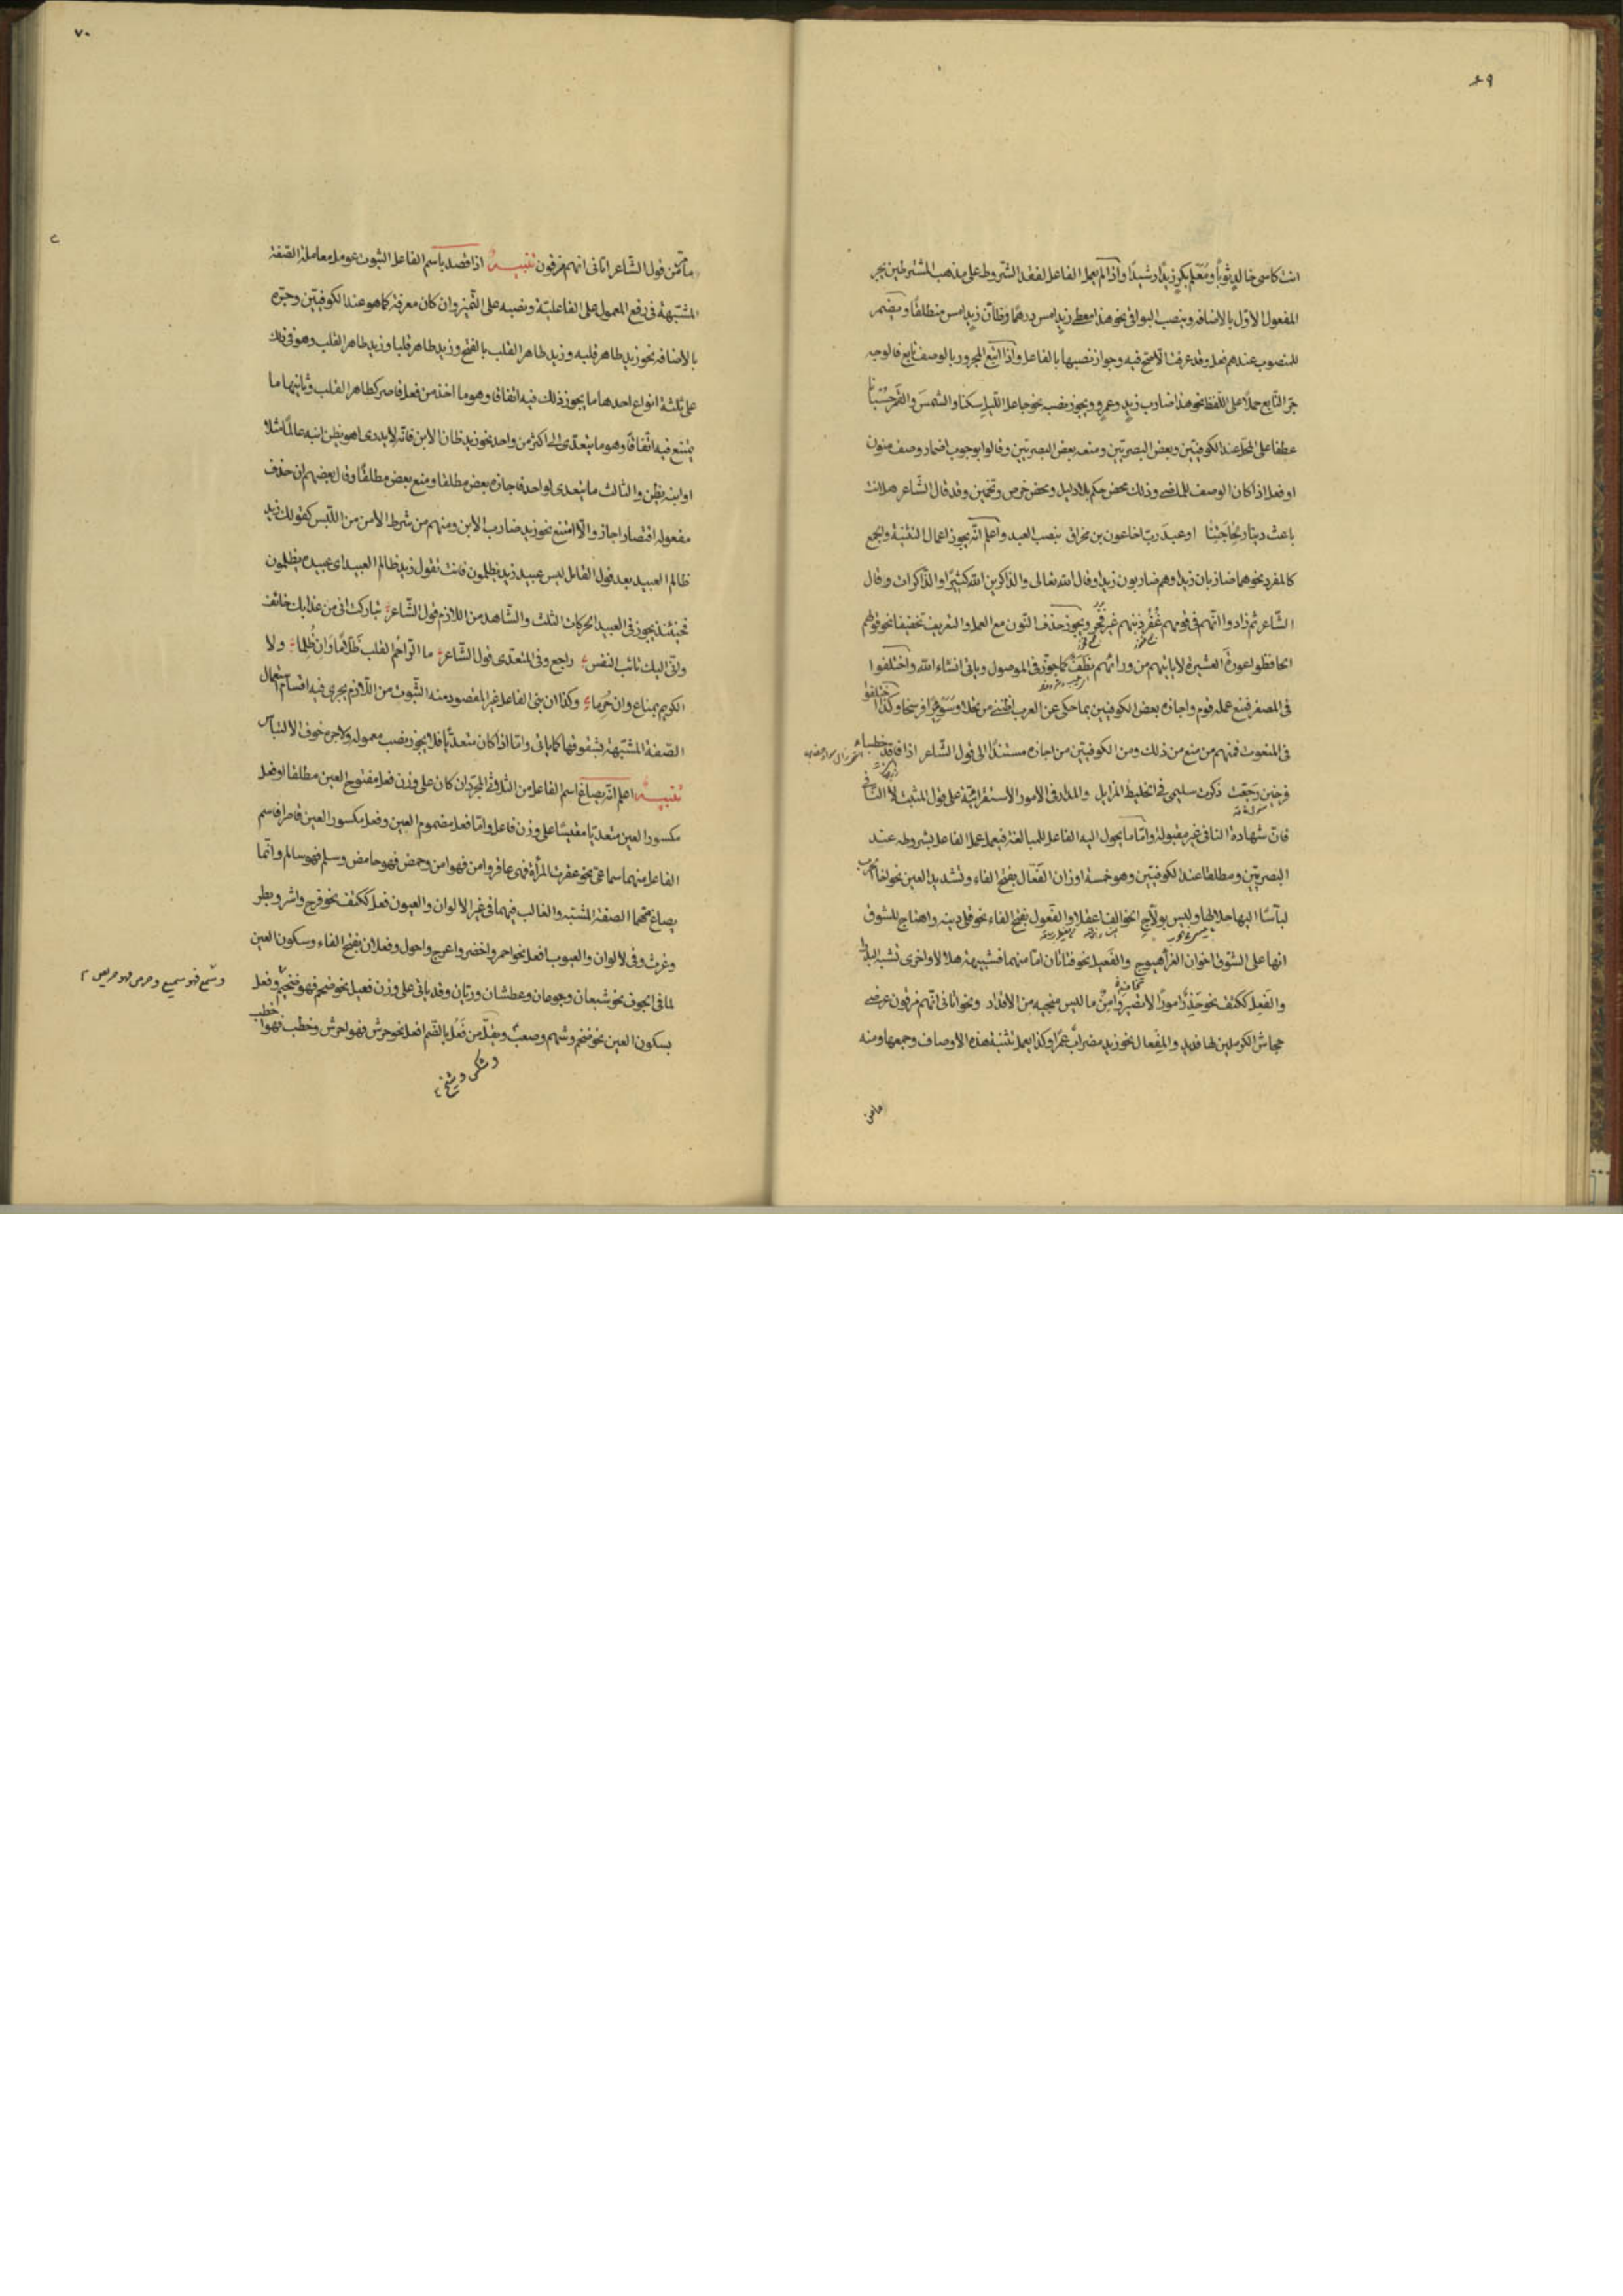 ٦٩
انت كاسى خالد ثوبًا ومُعَلِّم بكرٍ زيدًا رشيدًا واذا لم يعمل الفاعل لفقد الشروط على مذهب المشترطين يجر
المفعول الاوّل بالاضافه وينصب البواقى نحو هذا معطى زيدٍ امس درهمًا وظانّ زيدٍ امس منطلقًا ويضمر
للمنصوب عندهم فعل وقد عرفت الاصح فيه وجواز نصبها بالفاعل واذا اتبع المجرور بالوصف تابع فالوجه
جرّ التابع حملًا على اللّفظ نحو هذا ضارب زيدٍ وعمرٍو ويجوز نصبه نحو جاعل اللّيل سكنًا والشّمسَ والقمَر حُسْبَانًا
عطفا على المحلّ عند الكوفيّين وبعض البصريّين ومنعه بعض البصريّين وقالوا بوجوب اضمار وصف منون
او فعل اذا كان الوصف للماضى وذلك محض حكم بلا دليل ومحض خرص وتخمين وقد قال الشّاعر هل انت
باعث دينار لِحَاجَتِنا او عبدَ ربّ اخا عون بن مخراق بنصب العبد واعلم انّه يجوز اعمال التثنية والجمع
كالمفرد نحو هما ضاربان زيدا وهم ضاربون زيدا وقال الله تعالى والذاكرين الله كثيرًا والذّاكرات وقال
الشّاعر ثم زادوا انّهم فى قومهم غُفُرٌ ذنبهم غير فُجُر ويجوز حذف النّون مع العمل والتعريف تخفيفا نحو قولهم
الحافظوا عورةَ العشيرة لا ياتيهم من ورائهم نطَفٌ كما جوّز فى الموصول وياتى انشاء الله واختلفوا
فى المصغر فمنع عمله قوم واجازه بعض الكوفيين بما حكى عن العرب اظنّنى مرتحلا وسُوَيّرًا فرسخا وكذا اختلفوا
فى المنعوت فمنهم من منع من ذلك ومن الكوفيّين من اجازه مستندًا الى قول الشّاعر اذا فاقد خطباء
فرخين رَجَّعت ذكرت سليمى فى الخليط المزايل والمدار فى الامور الاستقرائيّة على قول المثبت لا النّافى
فانّ شهادة النافى غير مقبولة وامّا ما يحول اليه الفاعل للمبالغة فيعمل عمل الفاعل بشروطه عند
البصريّين ومطلقا عند الكوفيّين وهو خمسة اوزان الفَعّال بفتح الفاء وتشديد العين نحو اخا الحرب
لبآسًا اليها جلالها وليس بولّاج الخوالف اعقلا والفَعول بفتح الفاء نحو قلى دينه واهتاج للشوق
انها على الشّوق اخوان العزاء هيوج والفَعيل نحو فتاتان امّا منهما فشبيهة هلالا واخرى تشبه البدرا
والفَعِل ككتف نحو حَذِرٌ امورًا لا تضير وامِنٌ ما ليس منجيه من الاقدار ونحو اتانى انّهم مزقون عرضى
جحاش الكرملين لها فديد والمِفعال نحو زيد مضرابٌ عمرًا وكذا يعمل تثنية هذه الاوصاف وجمعها ومنه
مامن
٧٠
مامرّ من قول الشّاعر اتانى انهم مزقون تنبيـــه اذا قصد باسم الفاعل الثبوت عومل معاملة الصّفة
المشبّهة فى رفع المعمول على الفاعليّة ونصبه على التّميز وان كان معرفة كما هو عند الكوفيّين وجرّه
بالاضافه نحو زيد طاهر قلبه وزيد طاهر القلب بالفتح وزيد طاهر قلبا وزيد طاهر القلب وهو فى ذلك
على ثلثة انواع احدها ما يجوز ذلك فيه اتفاقا وهو ما اخذ من فعل قاصر كطاهر القلب وثانيها ما
يمتنع فيه اتّفاقًا وهو ما يتعدّى الى اكثر من واحد نحو زيد ظان الابن فانّه لا يدرى اهو يظن ابنه عالمًا مثلا
او ابنه يظن والثالث ما يتعدى لواحد فاجازه بعض مطلقا ومنع بعض مطلقًا وقال بعضهم ان حذف
مفعوله اقتصارا جاز والّا امتنع نحو زيد ضارب الابن ومنهم من شرط الامن من اللّبس كقولك زيد
ظالم العبيد بعد قول القايل ليس عبيد زيد يظلمون فانت تقول زيد ظالم العبيد اى عبيده يظلمون
فحينئذ يجوز فى العبيد الحركات الثلث والشّاهد من اللازم قول الشّاعر تباركت انى من عذابك خائف
وانّى اليك تائب النفس راجع وفى المتعدّى قول الشّاعر ما الرّاحم القلب ظَلّامًا وَان ظُلِما ولا
الكريم بمنّاع وان حُرِما وكذا ان بنى الفاعل غير المقصود منه الثّبوت من اللّازم يجرى فيه اقسام استعمال
الصّفة المشبّهة بشقوقها كما ياتى وامّا اذا كان متعدّيا فلا يجوز نصب معموله ولا جره خوف الالتباس
تنبيـــه اعلم انّه يصاغ اسم الفاعل من الثلاثى المجرّد ان كان على وزن فعل مفتوح العين مطلقا او فعل
مكسور العين متعدّيا مقيسًا على وزن فاعل وامّا فعل مضموم العين وفعل مكسور العين قاصرا فاسم
الفاعل منهما سماعىّ نحو عقرت المرأة فهى عاقر وامن فهو امن وحمض فهو حامض وسلم فهو سالم وانّما
يصاغ منهما الصفة المشبّه والغالب فيهما فى غير الالوان والعيون فعل ككتف نحو فرح واشر وبطر
وغرث وفى الالوان والعيوب افعل نحو احمر واخضر واعرج واحول وفعلان بفتح الفاء وسكون العين
لما فى الجوف نحو شبعان وجوعان وعطشان وريّان وقد ياتى على وزن فعيل نحو ضخم فهو ضخيم وفعل
وسمع فهو سميع وحرص فهو حريص
بسكون العين نحو ضخم وشهم وصعب ويقلّ من فَعُل بالضّم افعل نحو حرش فهو احرش وخطب فهو اخطب